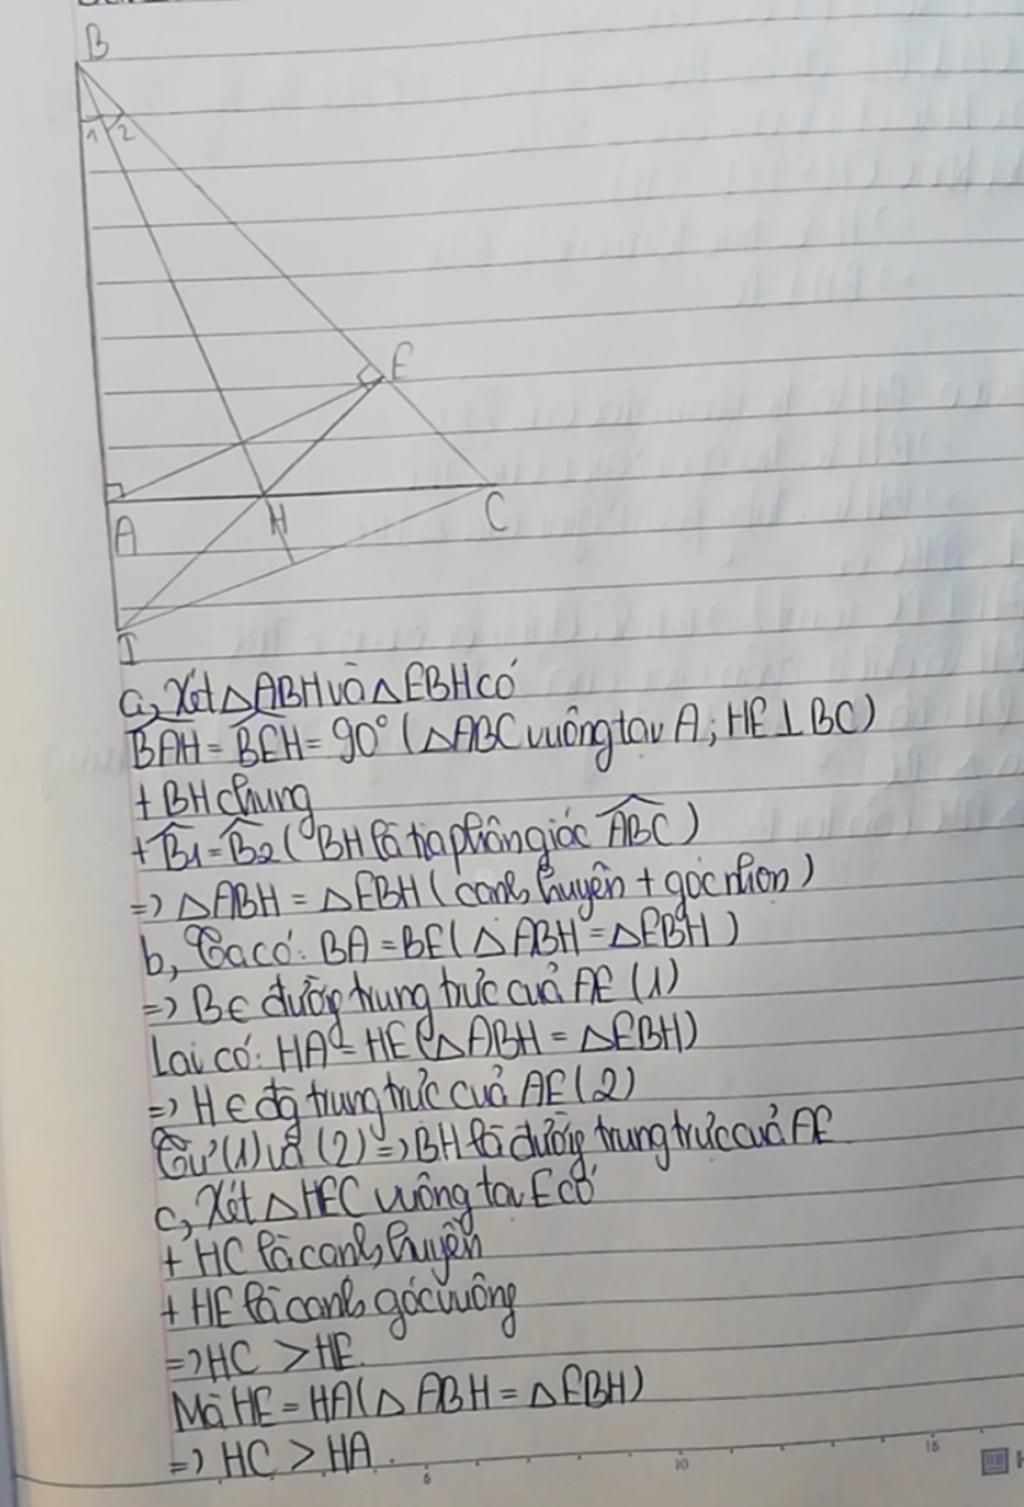 B
1 2
E
A
H
C
I
a, Xét △ABH và △EBH có
BAH = BEH = 90° (△ABC vuông tại A; HE⊥BC)
+ BH chung
+ B1 = B2 (BH là tia phân giác ABC)
=> △ABH = △EBH (cạnh huyền + góc nhọn)
b, Ta có: BA = BE (△ABH = △EBH)
=> B∈ đường trung trực của AE (1)
Lại có: HA = HE (△ABH = △EBH)
=> H∈ đg trung trực của AE (2)
Từ (1) và (2) => BH là đường trung trực của AE
c, Xét △HEC vuông tại E có
+ HC là cạnh huyền
+ HE là cạnh góc vuông
=> HC > HE.
Mà HE = HA (△ABH = △EBH)
=> HC > HA.
5 10 15